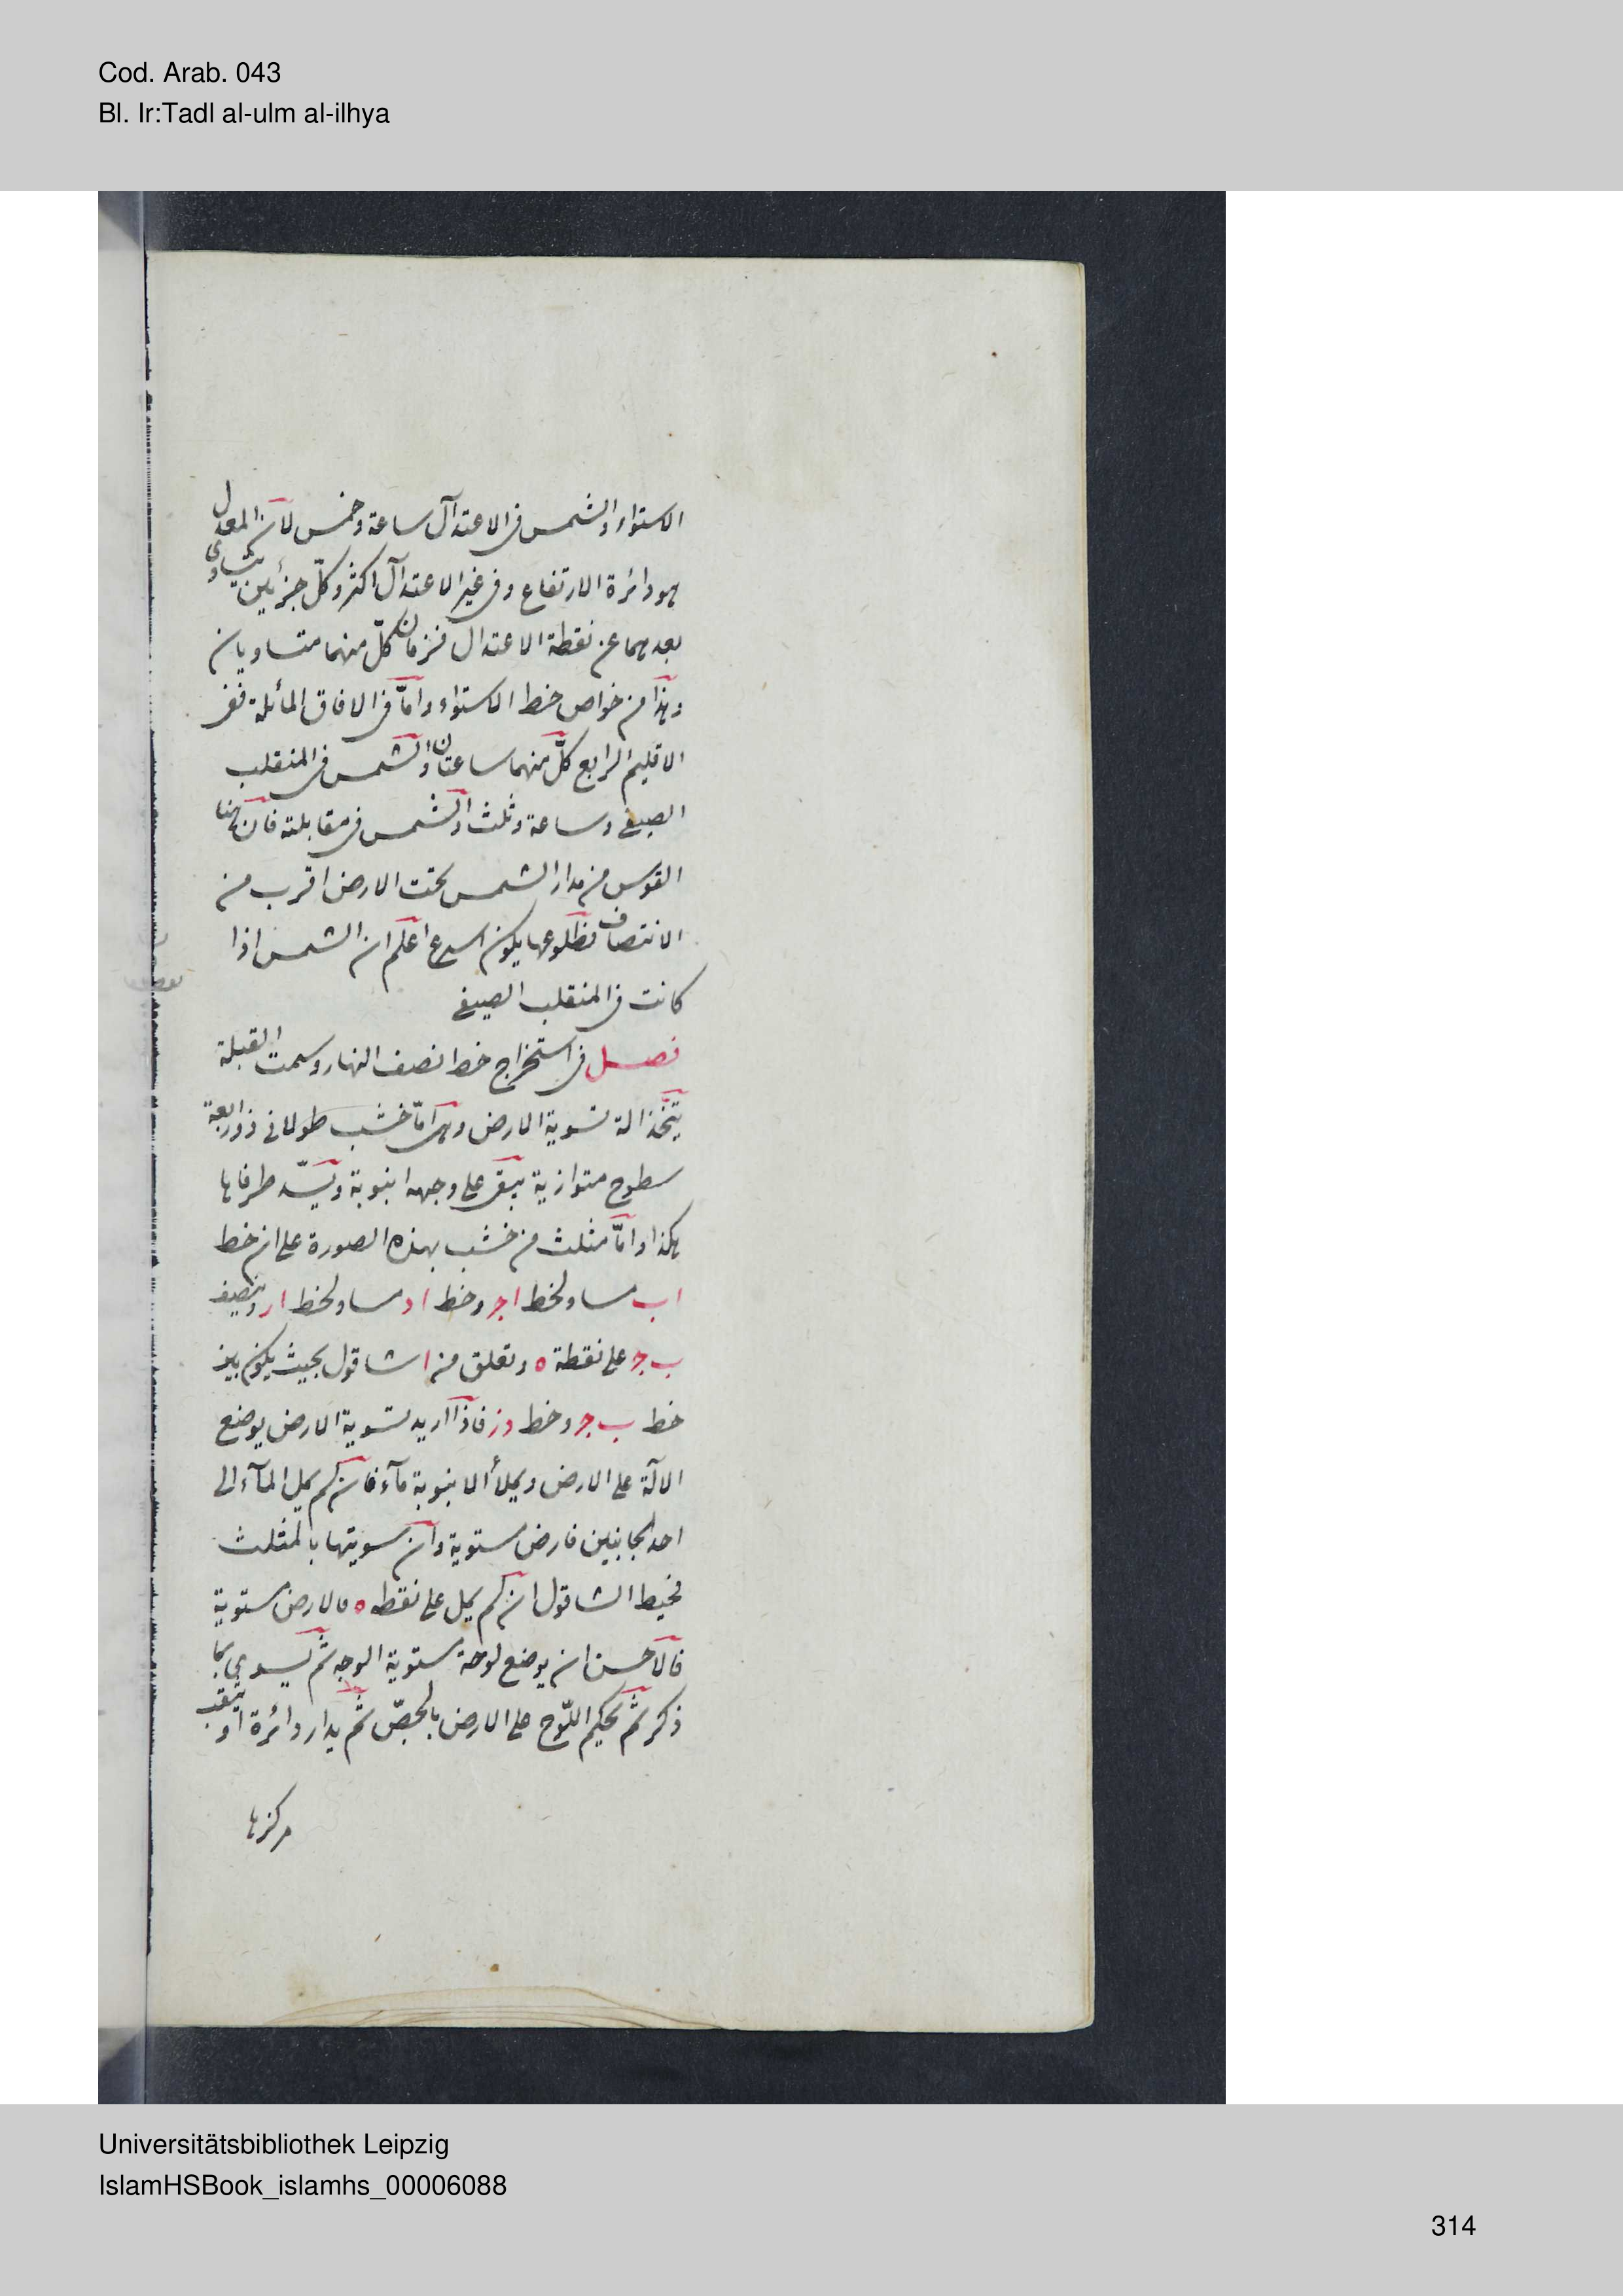 Cod. Arab. 043
Bl. Ir:Tadl al-ulm al-ilhya
الاستواء والشمس فى الاعتدآل ساعة وخمس لان المعدل
هو دائرة الارتفاع وفى غير الاعتدآل اكثر وكلّ جزئين يتساوى
بعدهما عن نقطة الاعتدال فزمان كلّ منهما متساويان
وهذا من خواص خط الاستواء وامّا فى الافاق المائلة ففى
الاقليم الرابع كلّ منهما ساعتان والشمس فى المنقلب
الصيفى وساعة وثلث والشمس فى مقابلته فان هنا
القوس من مدار الشمس تحت الارض اقرب من
الانتصاف فطلوعها يكون اسرع اعلم ان الشمس اذا
كانت فى المنقلب الصيفى
فصل فى استخراج خط نصف النهار وسمت القبلة
يتّخذ الة تسوية الارض وهى امّا خشب طولانى ذو اربعة
سطوح متوازية يبقى على وجهه انبوبة ويسدّ طرفاها
هكذا وامّا مثلث من خشب بهذه الصورة على ان خط
اب مساو لخط اجـ وخط اد مساو لخط ار وينصف
ب جـ على نقطة ه ونعلق من ا شاقول بحيث يكون بين
خط ب جـ وخط دز فاذا اريد تسوية الارض يوضع
الآلة على الارض ويملأ الانبوبة مآء فان لم يمل المآء الى
احد الجانبين فارض مستوية وان سويتها بالمثلث
فخيط الشاقول ان لم يمل على نقطه ه فالارض مستوية
فالاحسن ان يوضع لوحة مستوية الوجه ثم يسوى بما
ذكر ثم يحكم اللّوح على الارض بالجصّ ثم يدار دائرة او يثقب
مركزها
Universitätsbibliothek Leipzig
IslamHSBook_islamhs_00006088
314